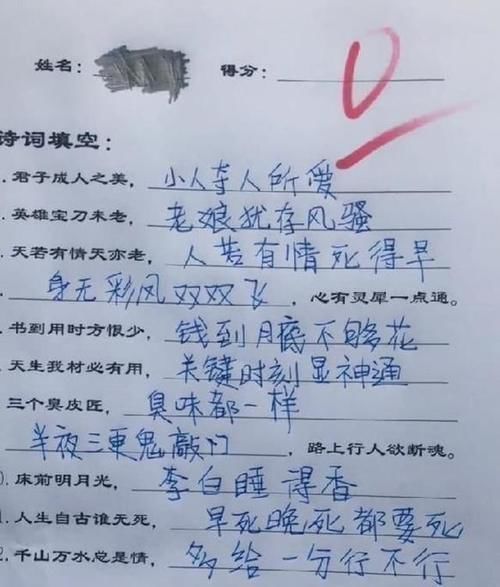 姓名： 得分： 0
诗词填空：
.君子成人之美，小人夺人所爱
.英雄宝刀未老，老娘犹存风骚
.天若有情天亦老，人若有情死得早
.身无彩凤双双飞，心有灵犀一点通。
.书到用时方恨少，钱到月底不够花
.天生我材必有用，关键时刻显神通
.三个臭皮匠，臭味都一样
半夜三更鬼敲门，路上行人欲断魂。
).床前明月光，李白睡得香
1.人生自古谁无死，早死晚死都要死
2.千山万水总是情，多给一分行不行